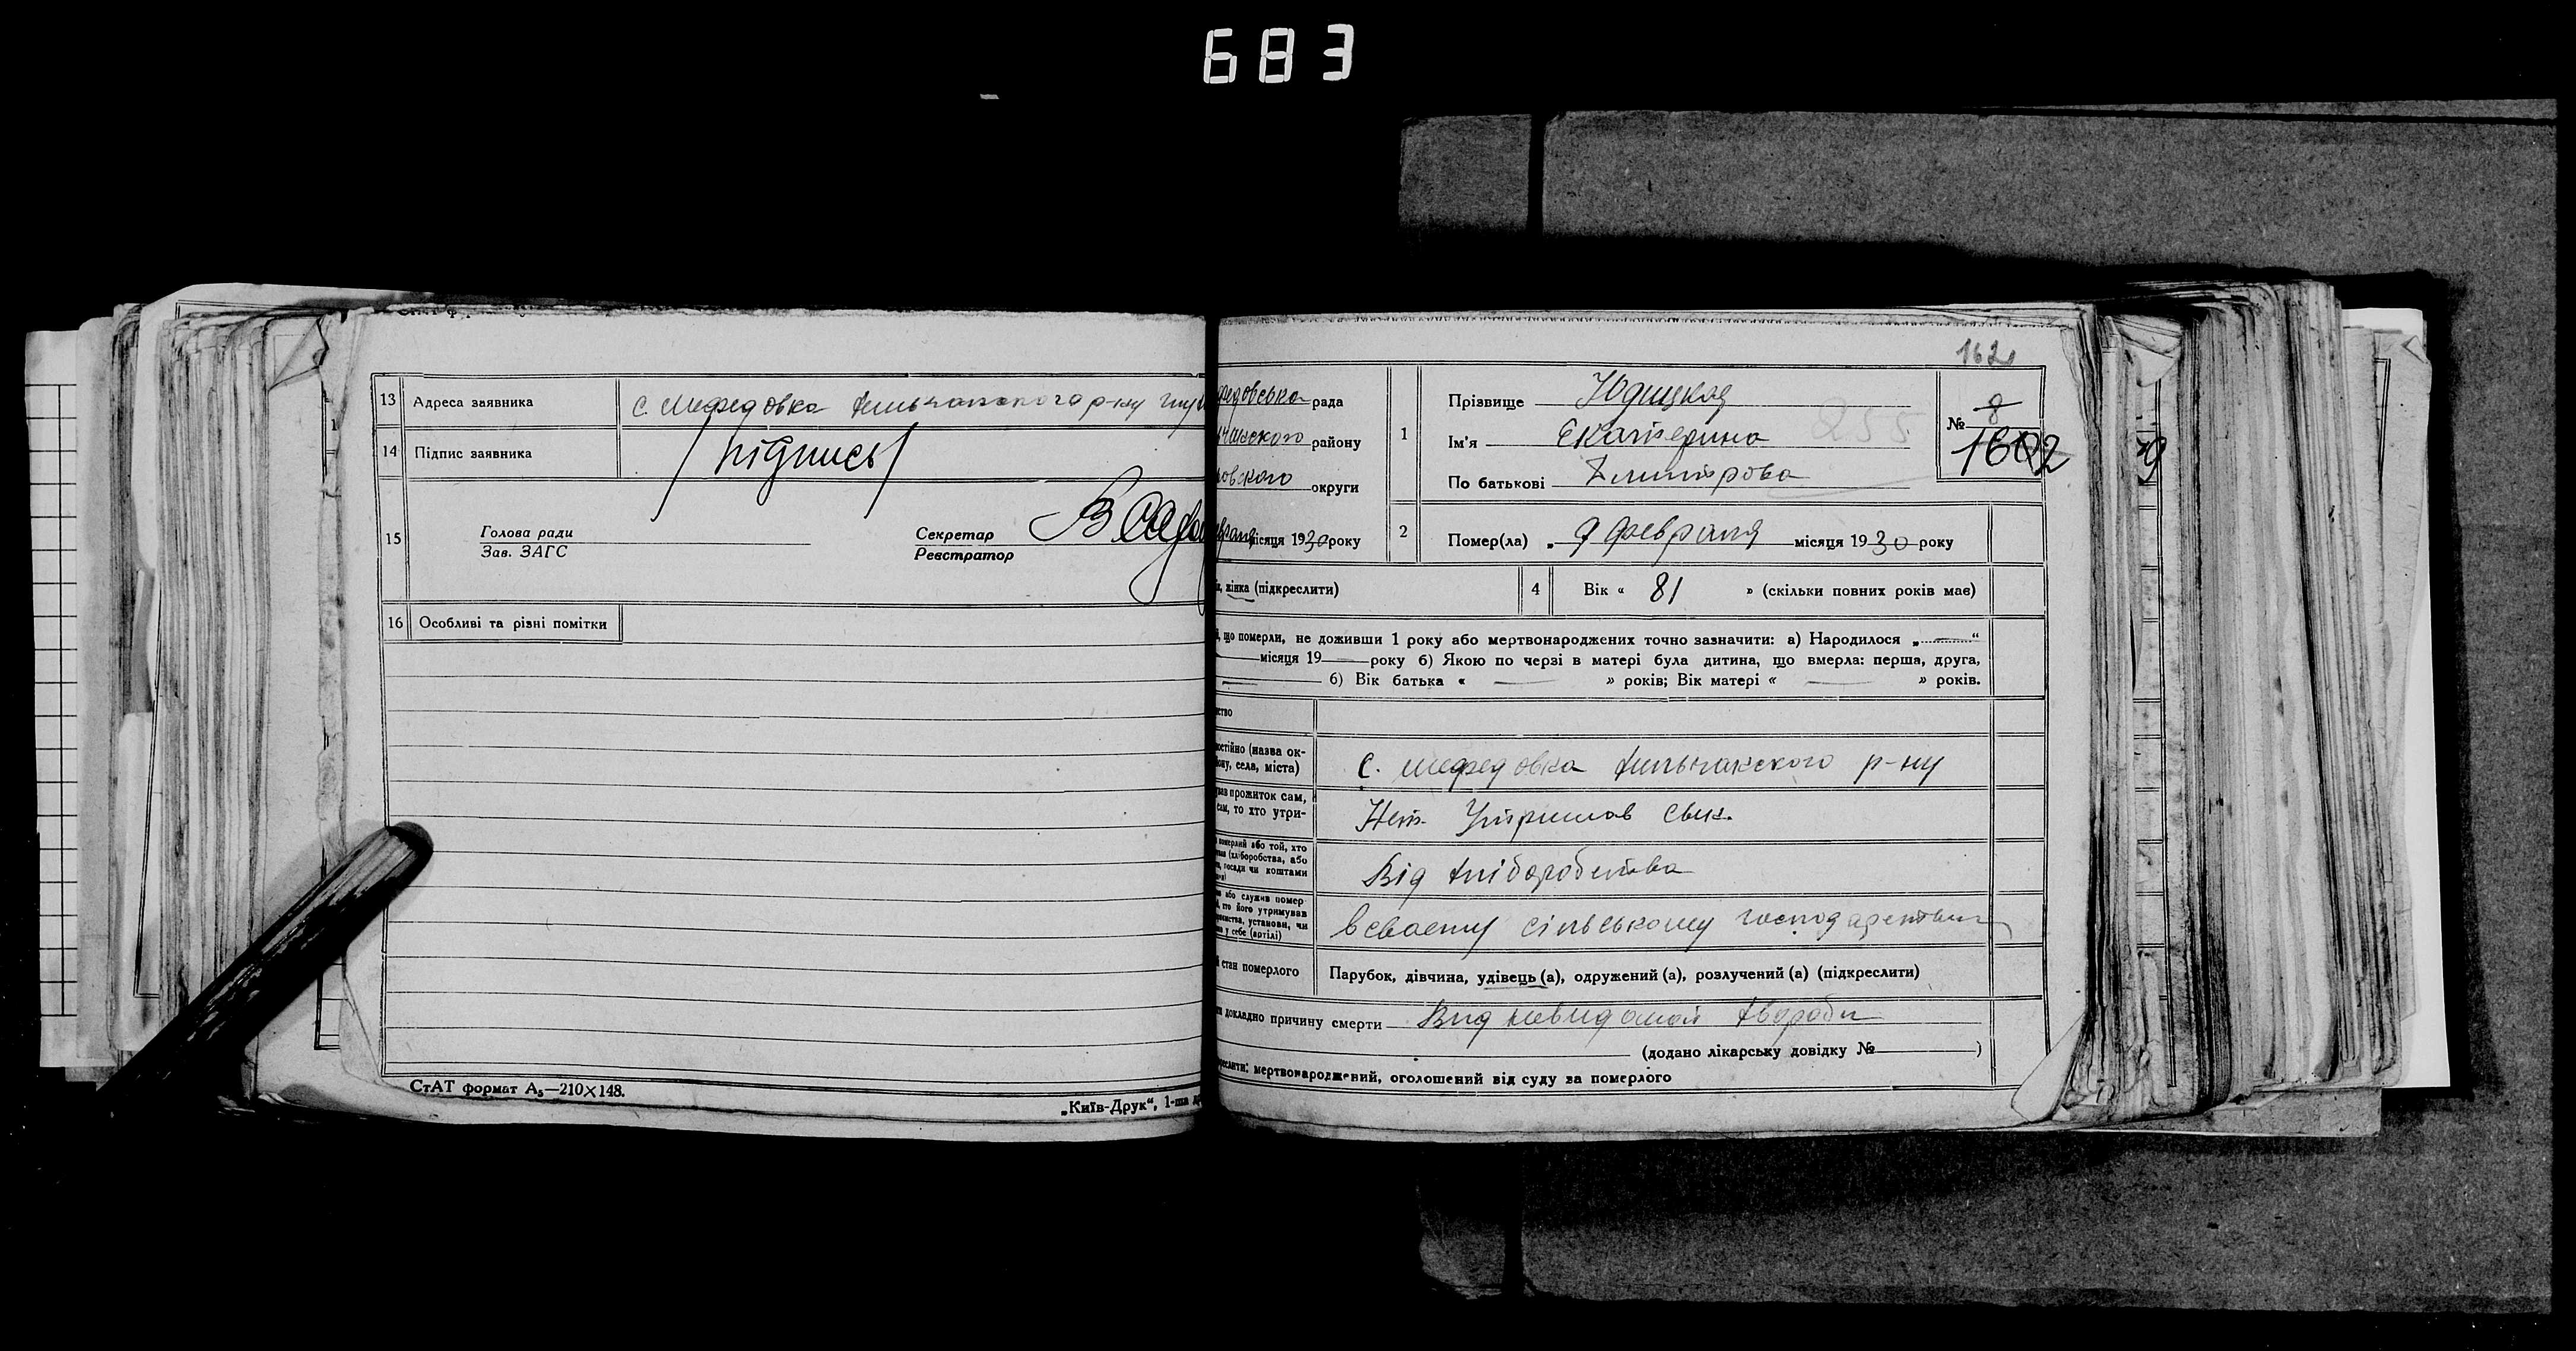 683
13 Адреса заявника с. Мефедовка Хильчанского р-ну
14 Підпис заявника /підпись/
15 Голова ради
Зав. ЗАГС
Секретар
Реєстратор
16 Особливі та різні помітки
СтАТ формат А₅—210×148.
„Київ-Друк“, 1-ша
162
федовська рада
чанского району
овского округи
враля місяця 1930 року
1 Прізвище Юдицкая
Ім'я Екатерина 255
По батькові Дмитрова
№ 8
1602
2 Помер(ла) „ 9 февраля місяця 1930 року
жінка (підкреслити)
4 Вік « 81 » (скільки повних років має)
що померли, не доживши 1 року або мертвонароджених точно зазначити: а) Народилося „ “
місяця 19 року б) Якою по черзі в матері була дитина, що вмерла: перша, друга,
б) Вік батька « » років; Вік матері « » років.
ство
остійно (назва ок-
ону, села, міста) с. Мефедовка Хильчанского р-ну
вав прожиток сам,
сам, то хто утри- Нет. Утримав сын.
померлий або той, хто
(хліборобства, або
посади чи коштами
Від хліборобства
або служив помер
хто його утримував
установи, чи
у себе (артілі)
в своему сільському господарстви
стан померлого Парубок, дівчина, удівець (а), одружений (а), розлучений (а) (підкреслити)
докладно причину смерти Вид невидомой хвороби
(додано лікарську довідку № )
реслити: мертвонароджений, оголошений від суду за померлого